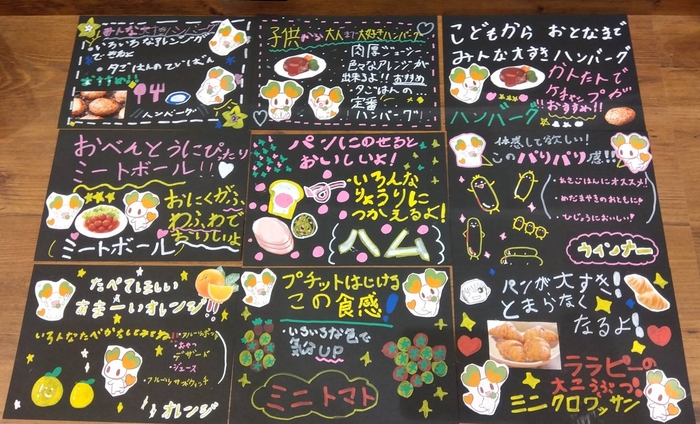 みんな大好きハンバーグ
いろいろなアレンジが
できるよ
夕ごはんのていばん
おすすめ!!
ハンバーグ
子供から大人まで大好きハンバーグ
肉厚ジューシー
色々なアレンジが
出来るよ!! おすすめ
夕ごはんの
定番
ハンバーグ!
こどもから おとなまで
みんな大すきハンバーグ
かんたんで
ケチャップが
おすすめ!!
ハンバーグ
おべんとうにぴったり
ミートボール!!
おにくがふ
わふわで
おいしいよ
ミートボール
パンにのせると
おいしいよ!
・いろんな
りょうりに
つかえるよ!
ハム
体感して欲しい!
このパリパリ感!!
・あさごはんにオススメ!
・めだまやきのおともに!
・ひじょうにおいしい!
ウインナー
たべてほしい
あまーいオレンジ!!
いろんなたべかたをしてみてね!
・おやつ
・デザート
・ジュース
・フルーツサンドウィッチ
オレンジ
プチットはじける
この食感!
・いろいろな色で
気分UP
ミニトマト
パンが大すき!
とまらなく
なるよ!
ララピーの
大こうぶつ!
ミニクロワッサン